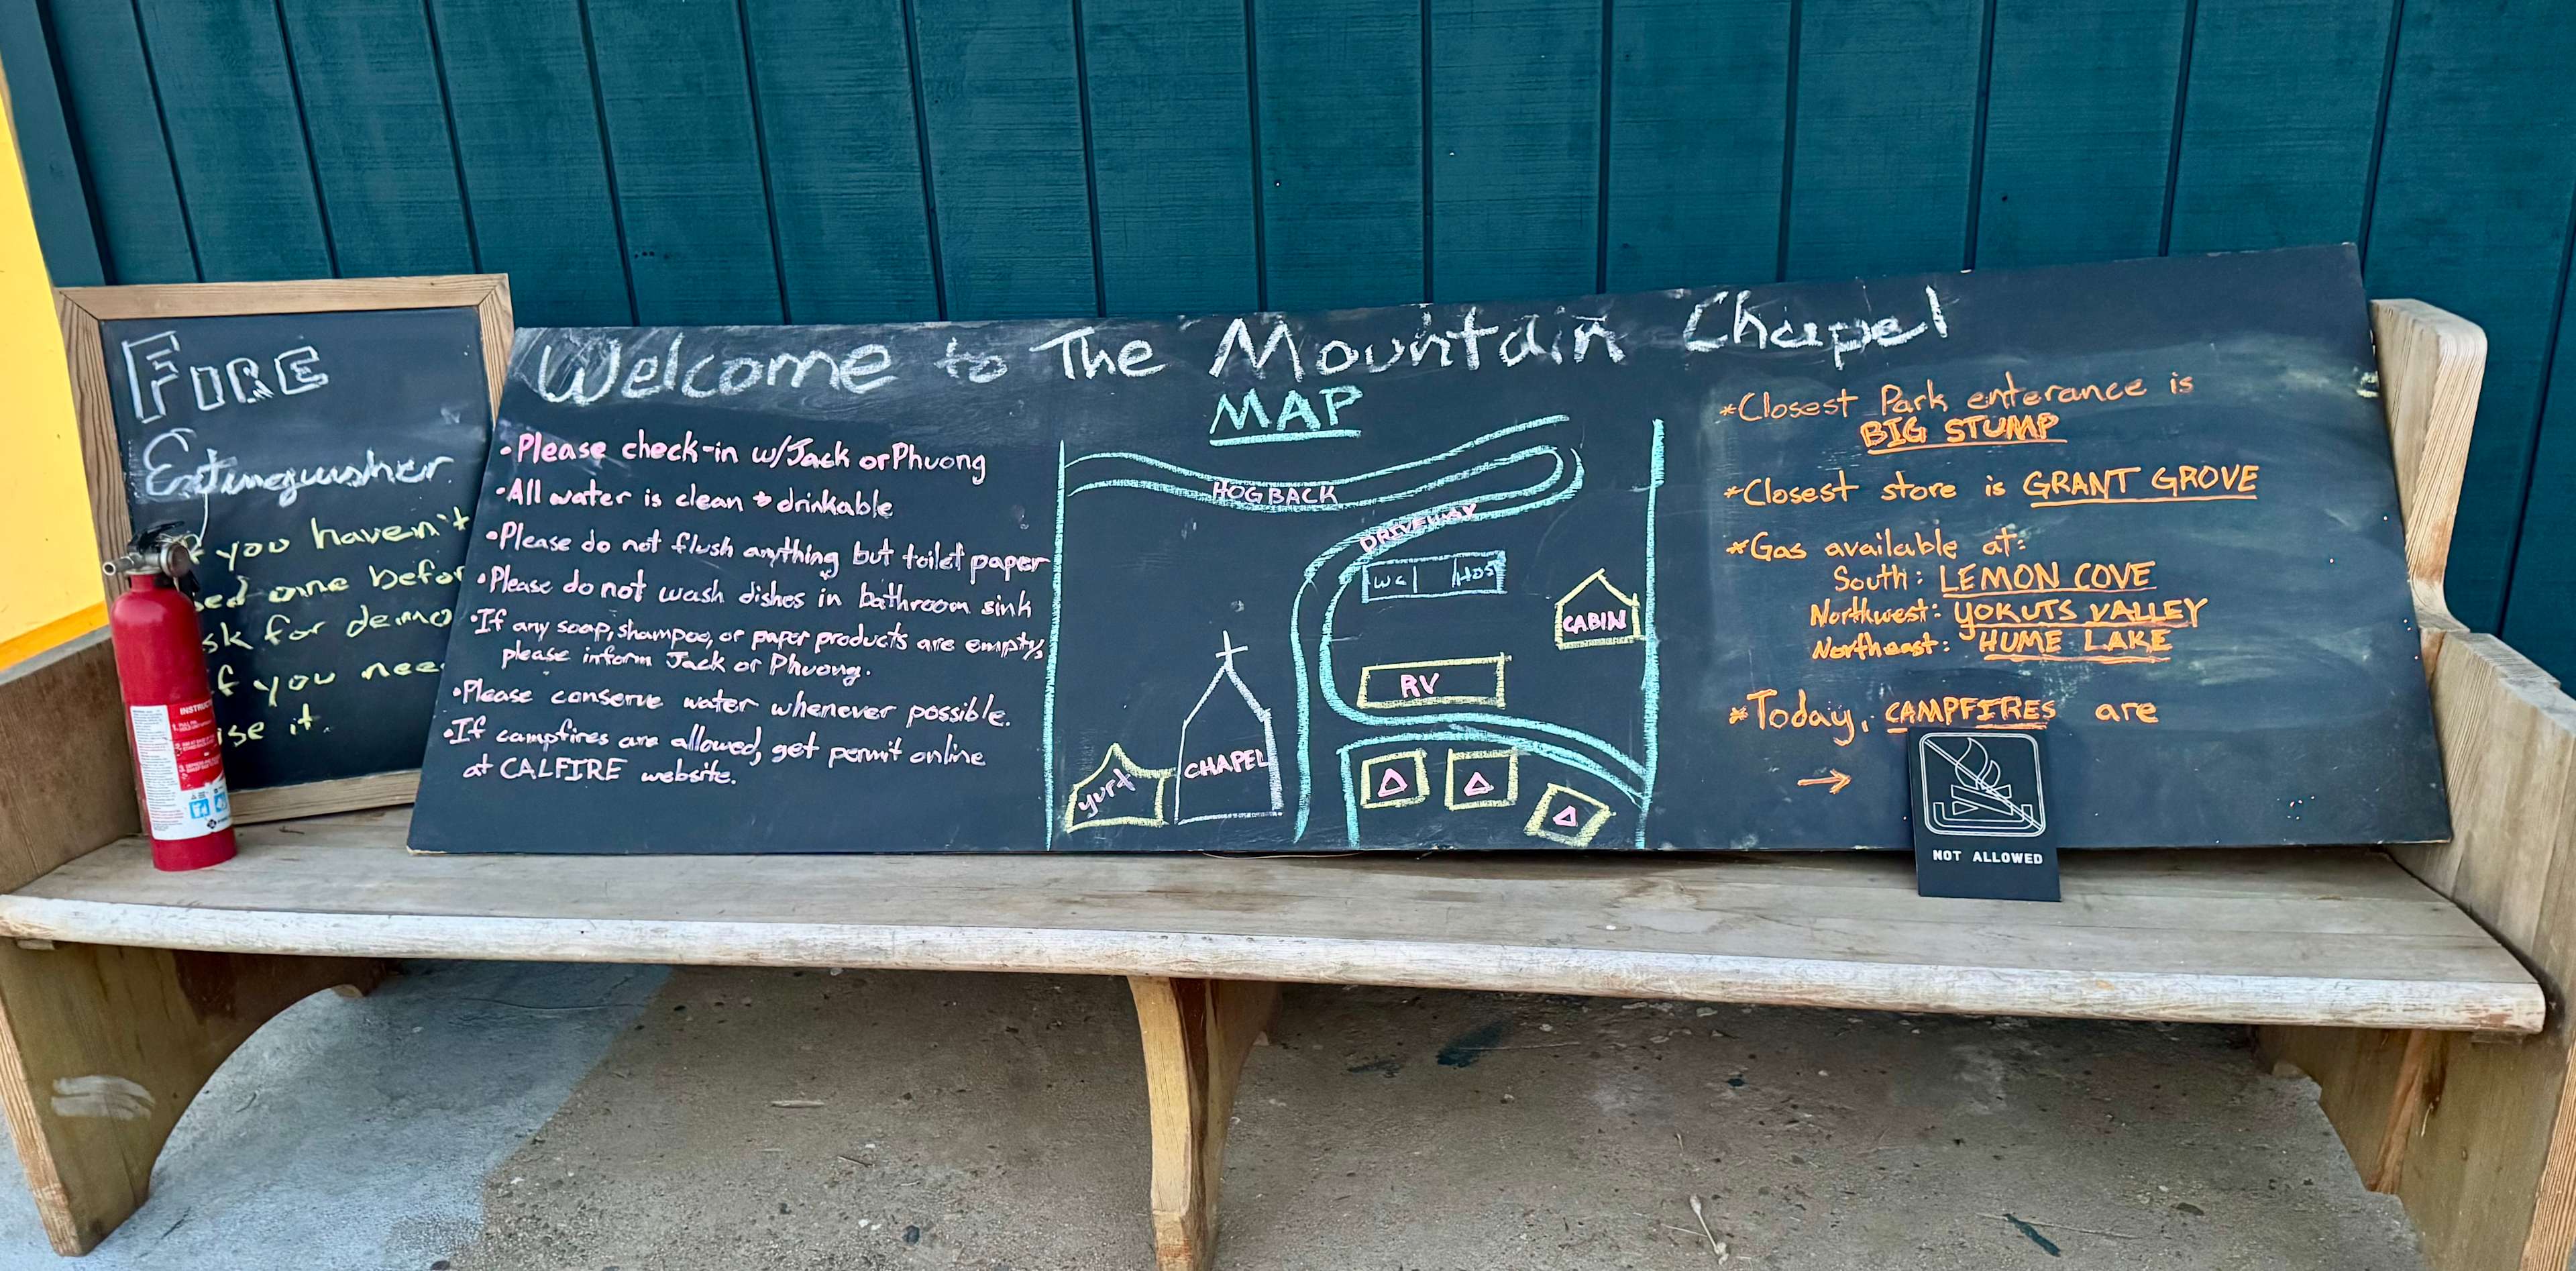 FIRE
Extinguisher
you haven't
one befor
for demo
you nee
it.
Welcome to The Mountain Chapel
•Please check-in w/Jack or Phuong
•All water is clean + drinkable
•Please do not flush anything but toilet paper
•Please do not wash dishes in bathroom sink
•If any soap, shampoo, or paper products are empty,
please inform Jack or Phuong.
•Please conserve water whenever possible.
•If campfires are allowed, get permit online
at CALFIRE website.
MAP
HOGBACK
DRIVEWAY
WC
CABIN
RV
CHAPEL
yurt
*Closest Park enterance is
BIG STUMP
*Closest store is GRANT GROVE
*Gas available at:
South: LEMON COVE
Northwest: YOKUTS VALLEY
Northeast: HUME LAKE
*Today, CAMPFIRES are
NOT ALLOWED
INSTRUCT